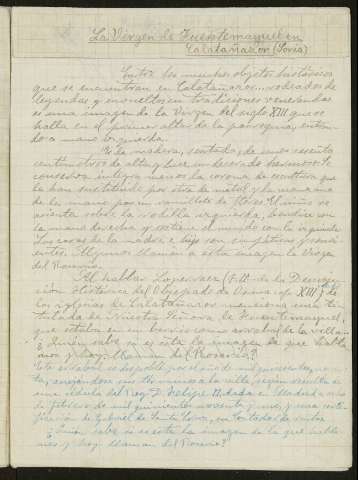 La Virgen de Fuentemayuel en
Calatañazor (Soria)
Entre los muchos objetos históricos
que se encuentran en Calatañazor... rodeados de
leyendas, y envueltos en tradiciones venerandas
es una imagen de la Virgen del siglo XIII que se
halla en el primer altar de la parroquia, entran-
do a mano izquierda.
Es de madera, sentada, de unos sesenta
centímetros de alta, y luce un decorado hermoso. Se
conserva íntegra menos la corona de escultura que
la han sustituido por otra de metal y la manzana
de la mano por un ramillete de flores. El niño se
asienta sobre la rodilla izquierda, bendice con
la mano derecha y sostiene el mundo con la izquierda.
Las caras de la madre e hijo son simpáticas y sonri-
entes. Algunos llaman a esta imagen la Virgen
del Rosario.
Al hablar Loperraez de la Descrip-
ción Histórica del Obispado de Osma
las iglesias de Calatañazor menciona una ti-
tulada de Nuestra Señora de Fuentemayuel,
que estaba en un barrio como arrabal de la villa
¿Quién sabe si es esta la imagen de que habla-
mos y hoy llaman del Rosario?
Este arrabal se despobló por el año de mil quinientos
viniéndose sus vecinos a la villa, según resulta de
una cédula del Rey D. Felipe II dada en Madrid a
de febrero de mil quinientos noventa y uno, y una certi-
ficación de Gabriel de Santa Cruz, su Contador de rentas
¿Quién sabe si es esta la imagen de la que habla-
mos y hoy llaman del Rosario?